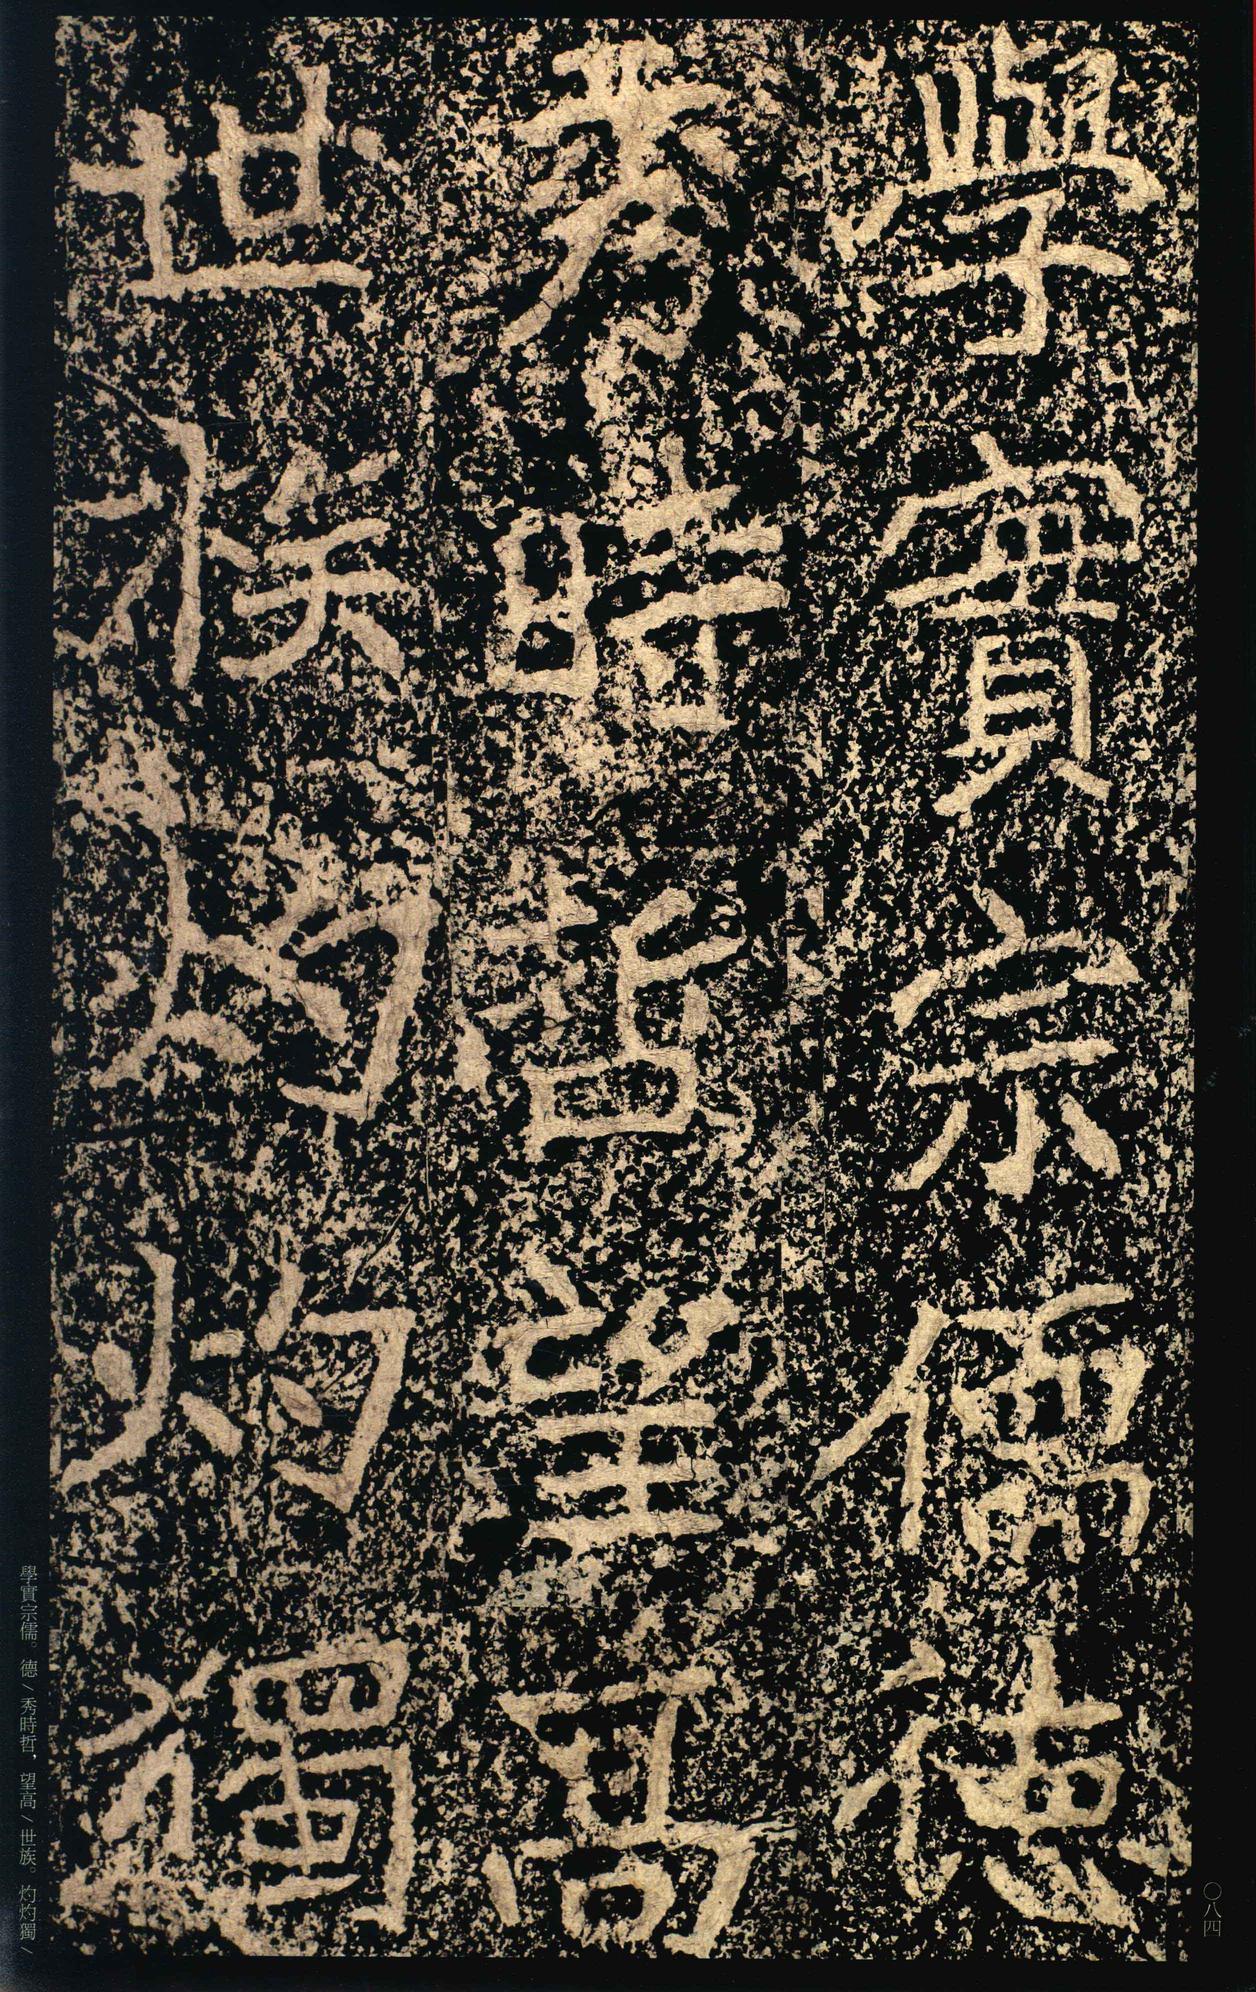 學實宗儒德
秀時哲望高
世族灼灼獨
學實宗儒。德/秀時哲，望高/世族。灼灼獨/
〇八四